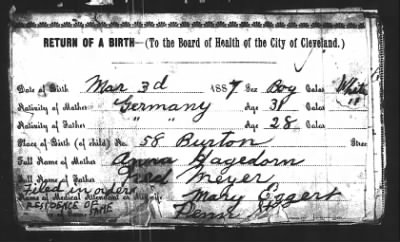 RETURN OF A BIRTH—(To the Board of Health of the City of Cleveland.)
Date of Birth Mar 3d 1887 Sex Boy Color White
Nativity of Mother Germany Age 31 Color "
Nativity of Father " " Age 28 Color
Place of Birth (of child) No. 58 Burton Stree
Full Name of Mother Anna Hagedorn
Full Name of Father Fred Meyer
Filed in order
Name of Medical Attendant or Midwife Mary Eggert
RESIDENCE OF SAME Penn